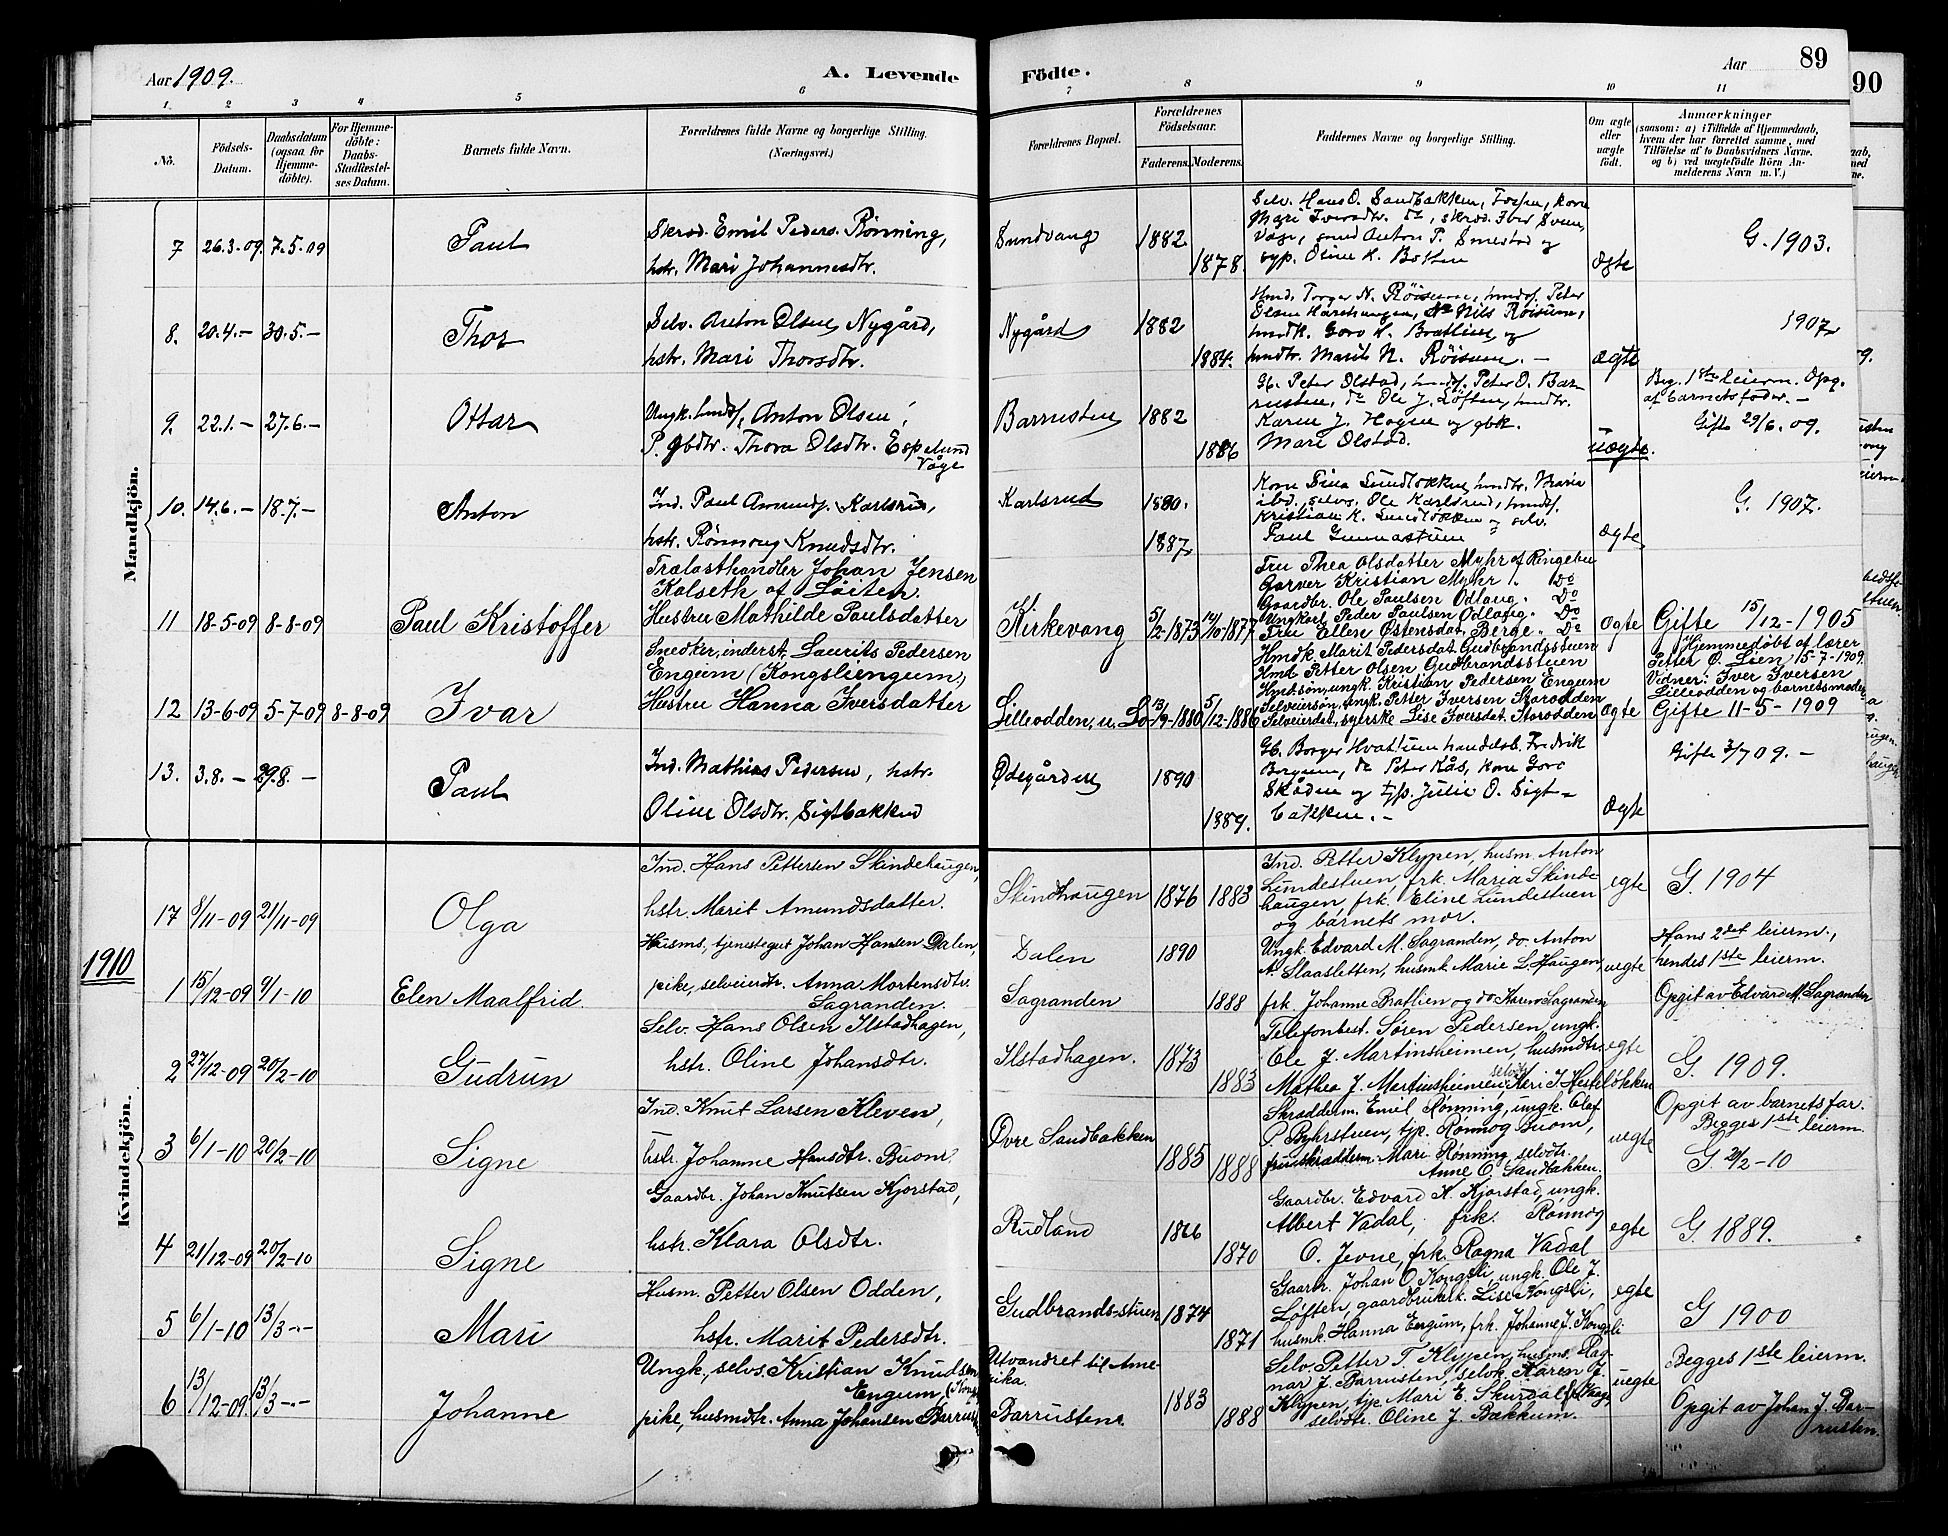 Aar 1909.
A. Levende Födte.
Aar 89
90
1 2 3 4 5 6 7 8 9 10 11
No.
Födsels-Datum.
Daabsdatum (ogsaa for Hjemme-döbte).
For Hjemme-döbte: Daabs-Stadfæstel-ses Datum.
Barnets fulde Navn.
Forældrenes fulde Navne og borgerlige Stilling.
(Næringsvei.)
Forældrenes Bopæl.
Forældrenes Födselsaar.
Faderens. Moderens.
Faddernes Navne og borgerlige Stilling.
Om ægte eller uægte födt.
Anmærkninger
(saasom: a) i Tilfælde af Hjemmedaab,
hvem der har forrettet samme, med
Tilföielse af to Daabsvidners Navne.
og b) ved uægtefödte Börn An-
melderens Navn m. V.)
Mandkjön.
7 26.3-09. 7.5-09
Paul
Skræd. Emil Peders. Rønning,
hstr. Mari Johannesdtr.
Sundvang 1882 1878.
Selv. Hans O. Sandbakken, Fossen, kone
Mari Iversdtr. do, skræd. Iver Svem,
Vage, smed Anton P. Smestad og
Oline K.
ægte
G. 1903.
8. 20.4.- 30.5.-
Thor
Selv. Anton Olsen Nygård,
hstr. Mari Thorsdtr.
Nygård 1882 1884.
Hmd. Torger N. Röisum, hmdsf. Peter
Olsen Nils Röisum,
hmdk. Goro K. Brætlien og
hmdtr. Marit N. Röisum. -
ægte
1907
9. 22.1.- 27.6.-
Ottar
Ungk. hmdsf. Anton Olsen,
P. gbdtr. Thora Olsdtr. Espelund
Våge
Barrusten 1882 1886
Gb. Peter Olstad, hmdsf. Peter O. Bar-
rusten, do Ole J. Löften, hmdtr.
Karen J. Hagen og gbk.
Mari Olstad.
uægte.
Beg. 1ste leierm. Opg.
af barnets fader. -
Gifte 29/6. 09.
10. 14.6.- 18.7.-
Anton
Ind. Paul Amundsf. Karlsrud,
hstr. Rønnong Knudsdtr.
Karlsrud 1880. 1887
Kone Sina Lundløkken, hmdtr. Maria
ibd, selvs. Ole Karlsrud, hmdsf.
Kristian K. Lundløkken og selv.
Paul Gunnastuen
ægte
G. 1907.
11 18-5-09 8-8-09
Paul Kristoffer
Trælasthandler Johan Jensen
Kalseth af Löiten.
Hustru Mathilde Paulsdatter
Kirkevang 5/12-1873 14/10-1877
Fru Thea Olsdatter Myhr af Ringebu
Garver Kristian Myhr. Do
Gaardbr. Ole Paulsen Odlaug. Do
Ungkarl Peder Paulsen Odlaug. Do
Fru Ellen Østensdat. Berge. Do
ægte
Gifte 15/12-1905
12 13-6-09 5-7-09 8-8-09
Ivar
Snedker, inderst. Laurits Pedersen
Engum (Kongsliengum)
Hustru Hanna Iversdatter
Lilleodden, u. Lo 13/9-1880 5/12-1886
Hmdk. Marit Pedersdat Gudbrandsstuen
Hmd. Petter Olsen Gudbrandsstuen
Hmdsön, ungk. Kristian Pedersen Engum
Selveiersön, ungk. Petter Iversen Storodden
Selveierdat., syerske Lise Iversdat. Storodden
ægte
Hjemmedöbt af lærer
Petter O. Lien 15-7-1909.
Vidner: Iver Iversen
Lilleodden og barnets moder
Gifte 11-5-1909
13. 3.8.- 29.8.-
Paul
Ind. Mathias Pedersen, hstr.
Oline Olsdtr. Sigtbakken
Ødegården 1890 1889.
Gb. Borger Hvattum handelsb. Fredrik
Borgum, do Peter Kås, kone Goro
Skåden og tjp. Julie O. Sigt-
bakken. -
ægte
Gifte 3/7 09. -
Kvindekjön.
17 8/11-09 21/11-09
Olga
Ind. Hans Pettersen Skindehaugen,
hstr. Marit Amundsdatter.
Skindhaugen 1876 1883
Ind. Petter Klypen, husm. Anton
Lundestuen, frk. Maria Skind-
haugen, frk. Eline Lundestuen
og barnets mor.
egte
G. 1904
1910
1 15/12-09 9/1-10
Elen Maalfrid.
Husms, tjenestegut Johan Hansen Dalen,
pike, selveierdtr. Anna Mortensdtr.
Sagranden.
Dalen 1890
Sagranden 1888
Ungk. Edvard M. Sagranden, do. Anton
A. Slaasletten, husmk. Marie L. Haugen,
frk. Johanne Brætlien og do. Karen Sagranden
uegte
Hans 2det leierm.,
hendes 1ste leierm.
Opgit av Edvard M. Sagranden
2 27/12-09 20/2-10
Gudrun
Selv. Hans Olsen Ilstadhagen,
hstr. Oline Johansdtr.
Ilstadhagen. 1873 1883
Telefonbest. Sören Pedersen, ungk.
Ole J. Martinsheimen, husmdtr.
Mathea J. Martinsheimen, selvdtr. Kari J. Hesteløkken
egte
G. 1909.
3 6/1-10 20/2-10
Signe
Ind. Knut Larsen Kleven,
hstr. Johanne Hansdtr. Buom.
Øvre Sandbakken 1885 1888
Skrædderm. Emil Rönning, ungk. Olaf
P. Byhrstuen, tjp. Rönnog Buom,
fruskrædderm. Mari Rönning, selvdtr.
Anne O. Sandbakken.
uegte
Opgit av barnets far.
Begges 1ste leierm.
G. 20/2-10
4 21/12-09 20/2-10
Signe
Gaardbr. Johan Knutsen Kjorstad,
hstr. Klara Olsdtr.
Rudland 1866 1870
Gaardbr. Edvard K. Kjorstad, ungk.
Albert Vadal, frk. Rönnog
O. Jevne, frk. Ragna Vadal
egte
G. 1889.
5 6/1-10 13/3--
Mari
Husm. Petter Olsen Odden,
hstr. Marit Pedersdtr.
Gudbrands-stuen 1874 1871
Gaardbr. Johan O. Kongsli, ungk. Ole J.
Løften, gaardbrukk. Lise Kongsli,
husmk. Hanna Engum, frk. Johanne J. Kongsli
egte
G 1900
6 13/12-09 13/3--
Johanne
Ungk., selvs. Kristian Knudsen
Engum,
pike, husmdtr. Anna Johansen Barrusten
Utvandret til Ame-
rika.
Barrusten. 1883 1888
Selv. Petter T. Klypen, husms. Rag-
nar J. Barrusten, selvk. Karen J.
Klypen, tjp. Mari E. Skurdal
selvdtr. Oline J. Bækkum.
uegte
Begges 1ste leierm.
Opgit av Johan J. Bar-
rusten.